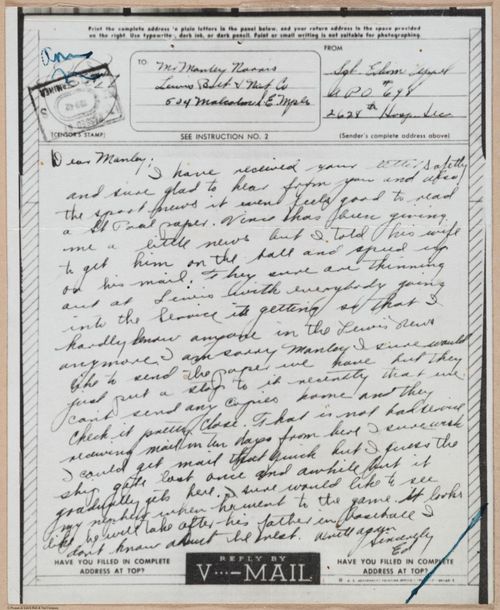 Print the complete address in plain letters in the panel below, and your return address in the space provided
on the right. Use typewriter, dark ink, or dark pencil. Faint or small writing is not suitable for photographing.
TO
FROM
Mr Manley Norris
Lewis Bolt & Nut Co
504 Malcolm S.E. Mpls
Sgt.
A.P.O. 698
2628th Hosp. Sec
(CENSOR'S STAMP)
SEE INSTRUCTION NO. 2
(Sender's complete address above)
Dear Manley;
I have received your letter safetly
and sure glad to hear from you and also
the sport news it even feels good to read
a St Paul paper. Vince has been giving
me a little news but I told his wife
to get him on the ball and speed up
on his mail. They sure are thinning
out at Lewis with everybody going
into the Service its getting so that I
hardly know anyone in the Lewis News
anymore. I am sorry Manley I sure would
like to send the paper we have but they
just put a stop to it recently that we
cant send any copies home and they
check it pretty close. That is not bad service
receiving mail in ten days from here I sure wish
I could get mail that quick but I guess the
ship gets lost once and awhile but it
gradually gets here. I sure would like to see
my nephew when he went to the game. It looks
like he will take after his father in baseball I
dont know about the rest. Write again
Sincerely
Ed
HAVE YOU FILLED IN COMPLETE
ADDRESS AT TOP?
REPLY BY
V···—MAIL
HAVE YOU FILLED IN COMPLETE
ADDRESS AT TOP?